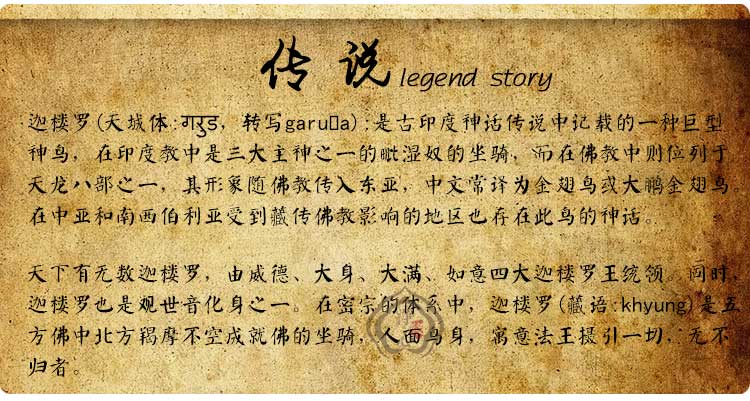 传 说 legend story
迦楼罗(天城体:गरुड, 转写garu▯a):是古印度神话传说中记载的一种巨型
神鸟，在印度教中是三大主神之一的毗湿奴的坐骑，而在佛教中则位列于
天龙八部之一，其形象随佛教传入东亚，中文常译为金翅鸟或大鹏金翅鸟。
在中亚和南西伯利亚受到藏传佛教影响的地区也存在此鸟的神话。
天下有无数迦楼罗，由威德、大身、大满、如意四大迦楼罗王统领。同时，
迦楼罗也是观世音化身之一。在密宗的体系中，迦楼罗(藏语:khyung)是五
方佛中北方羯摩不空成就佛的坐骑，人面鸟身，寓意法王摄引一切，无不
归者。